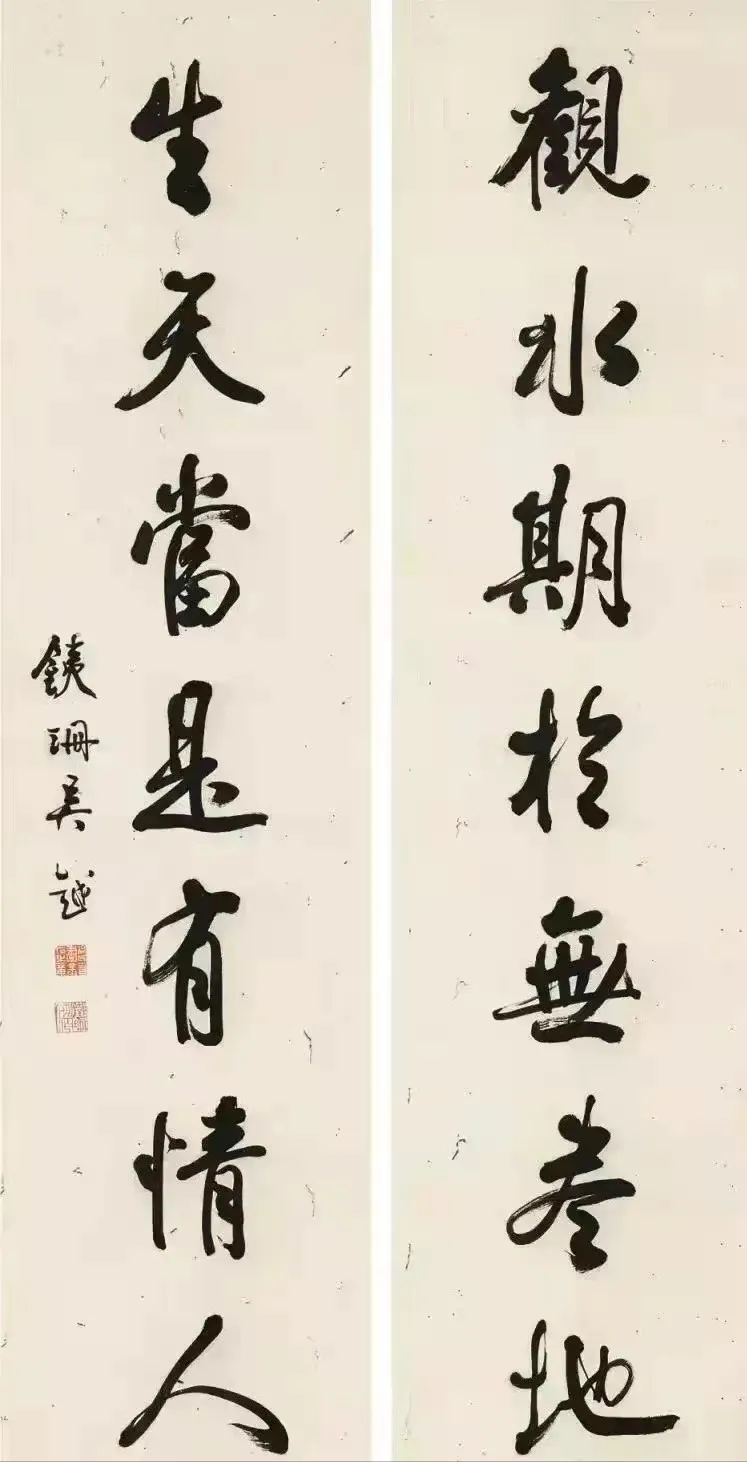 觀水期於無盡地
生天當是有情人
銕珊吳越